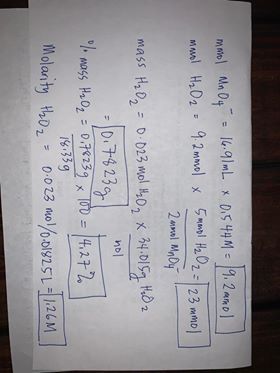 mmol MnO4⁻ = 16.91mL × 0.544M = 9.2mmol
mmol H2O2 = 9.2mmol × 5mmol H2O2 / 2mmol MnO4⁻ = 23mmol
mass H2O2 = 0.023mol H2O2 × 34.015g H2O2 / mol
= 0.7823g
% mass H2O2 = 0.7823g / 18.33g × 100 = 4.27%
Molarity H2O2 = 0.023 mol/.01825L = 1.26M